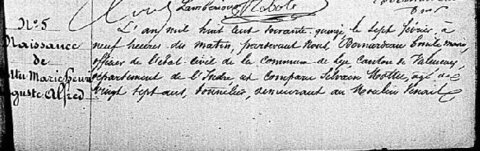 N° 5
Naissance
de
Marie
guste Alfred
L'an mil huit cent soixante quinze le sept février, à
neuf heures du matin, pardevant Nous Bonnardeau Emile Marie
officier de l'état civil de la commune de Lyé Canton de Valençay,
département de l'Indre est comparu Silvain Mottu, agé de
vingt sept ans, tonnelier, demeurant au Moulin